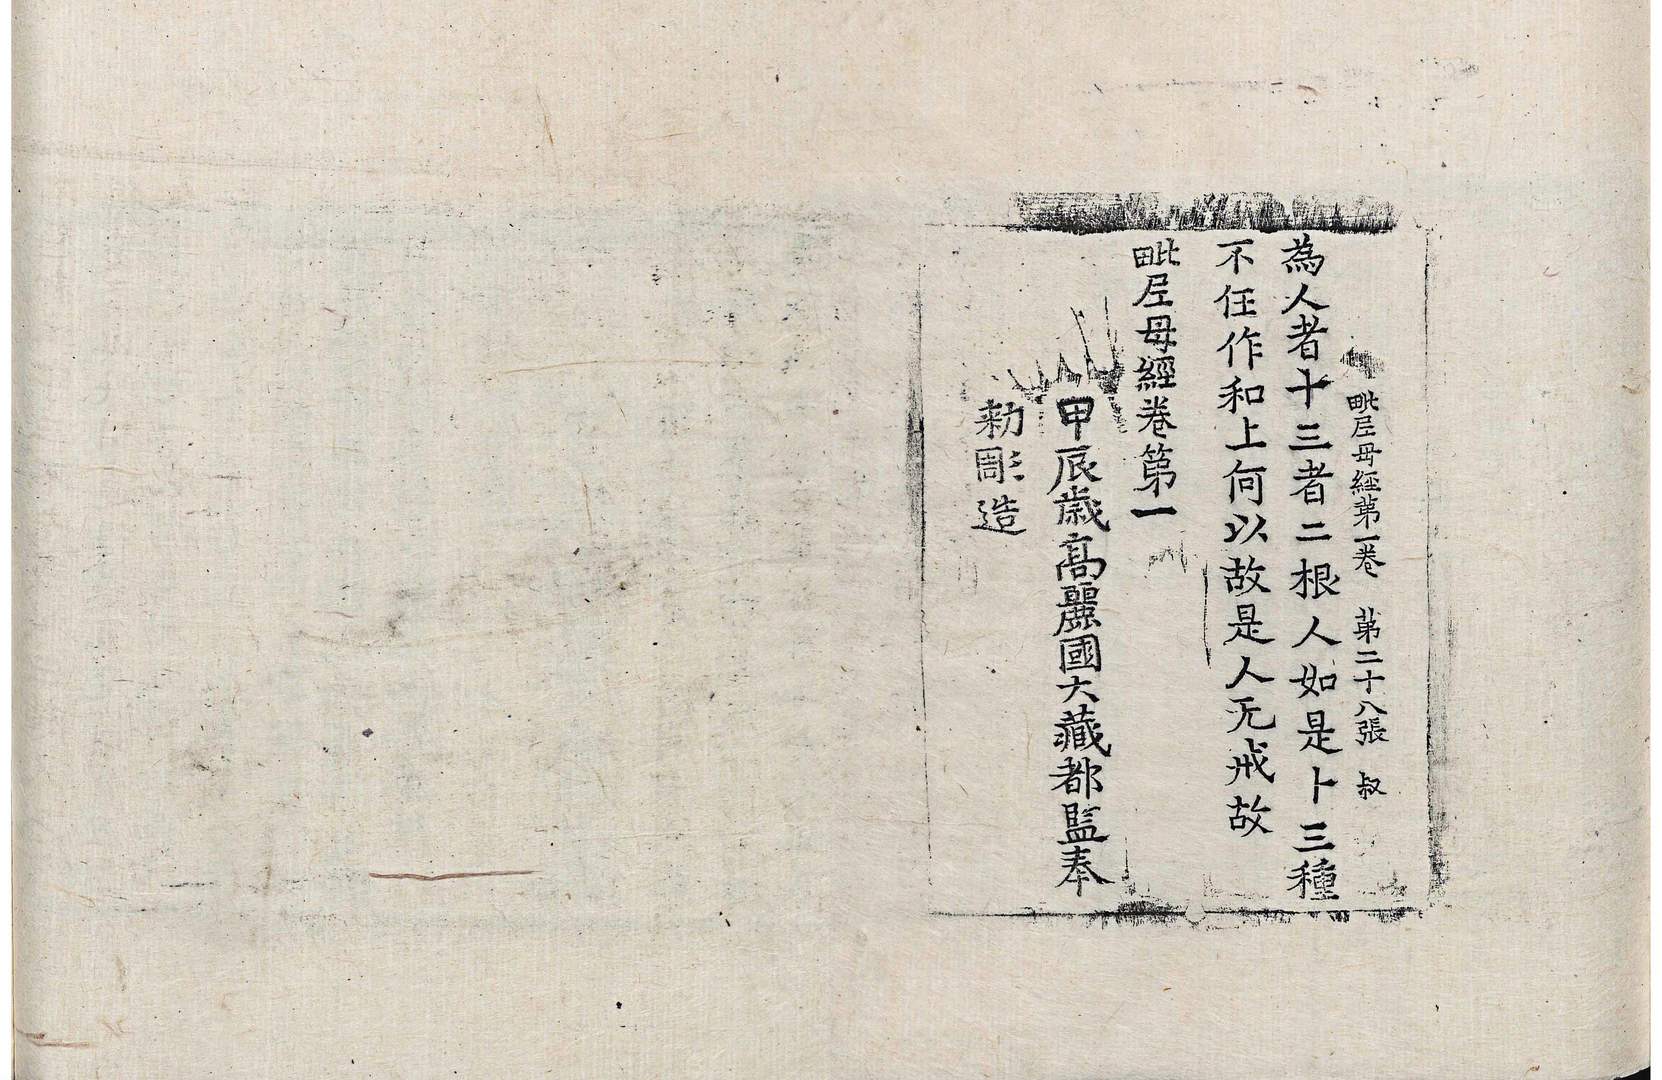 毗𡰱母經第一卷　第二十八張　叔
為人者十三者二根人如是十三種
不任作和上何以故是人无戒故
毗𡰱母經卷第一
甲辰歲高麗國大藏都監奉
勑彫造